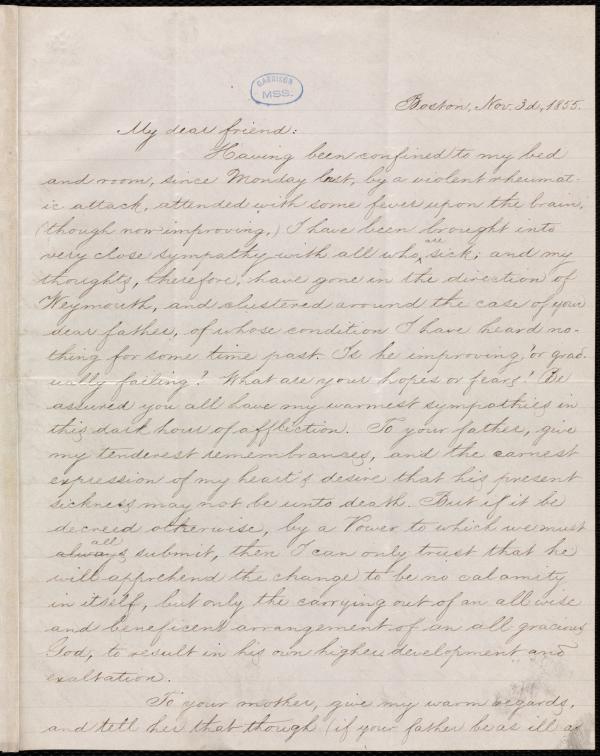 GARRISON
MSS.
Boston, Nov. 3d, 1855.
My dear friend:
Having been confined to my bed
and room, since Monday last, by a violent rheumat-
ic attack, attended with some fever upon the brain,
(though now improving,) I have been brought into
very close sympathy with all who are sick; and my
thoughts, therefore, have gone in the direction of
Weymouth, and clustered around the case of your
dear father, of whose condition I have heard no-
thing for some time past. Is he improving, or grad-
ually failing? What are your hopes or fears? Be
assured you all have my warmest sympathies in
this dark hour of affliction. To your father, give
my tenderest remembranses, and the earnest
expression of my heart's desire that his present
sickness may not be unto death. But if it be
decreed otherwise, by a Power to which we must
always all submit, then I can only trust that he
will apprehend the change to be no calamity
in itself, but only the carrying out of an all wise
and beneficent arrangement of an all gracious
God, to result in his own higher development and
exaltation.
To your mother, give my warm regards,
and tell her that though (if your father be as ill as